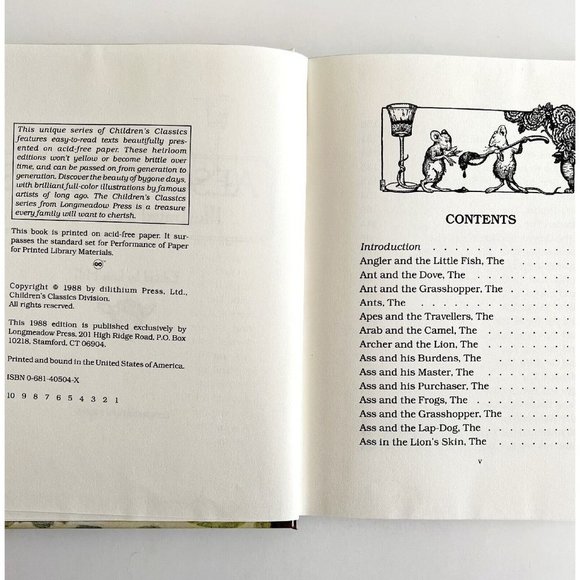 This unique series of Children's Classics
features easy-to-read texts beautifully pre-
sented on acid-free paper. These heirloom
editions won't yellow or become brittle over
time, and can be passed on from generation to
generation. Discover the beauty of bygone days,
with brilliant full-color illustrations by famous
artists of long ago. The Children's Classics
series from Longmeadow Press is a treasure
every family will want to cherish.
This book is printed on acid-free paper. It sur-
passes the standard set for Performance of Paper
for Printed Library Materials.
∞
Copyright © 1988 by dilithium Press, Ltd.,
Children's Classics Division.
All rights reserved.
This 1988 edition is published exclusively by
Longmeadow Press, 201 High Ridge Road, P.O. Box
10218, Stamford, CT 06904.
Printed and bound in the United States of America.
ISBN 0-681-40504-X
10 9 8 7 6 5 4 3 2 1
CONTENTS
Introduction . . . . . . . . . .
Angler and the Little Fish, The . . . . .
Ant and the Dove, The . . . . . . .
Ant and the Grasshopper, The . . . . .
Ants, The . . . . . . . . . . .
Apes and the Travellers, The . . . . . .
Arab and the Camel, The . . . . . . .
Archer and the Lion, The . . . . . . .
Ass and his Burdens, The . . . . . . .
Ass and his Master, The . . . . . . .
Ass and his Purchaser, The . . . . . .
Ass and the Frogs, The . . . . . . .
Ass and the Grasshopper, The . . . . .
Ass and the Lap-Dog, The . . . . . . .
Ass in the Lion's Skin, The . . . . . .
v